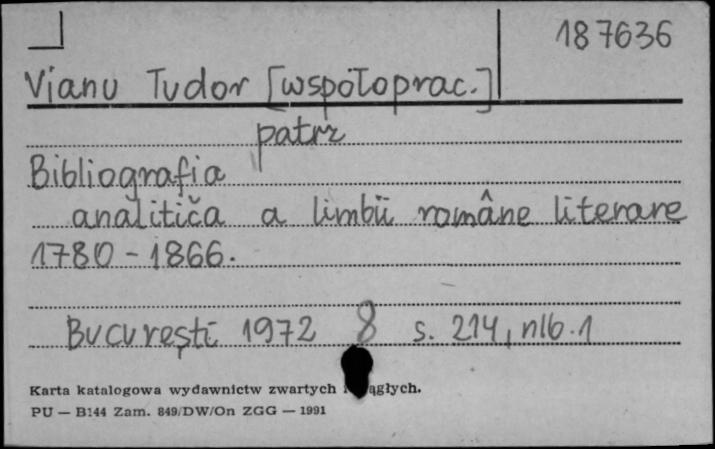 187636
Vianu Tudor [współoprac.]
patrz
Bibliografia
analitiča a limbii române literare
1780-1866.
București 1972 8 s. 214, nlb. 1
Karta katalogowa wydawnictw zwartych ągłych.
PU — B144 Zam. 849/DW/On ZGG — 1991